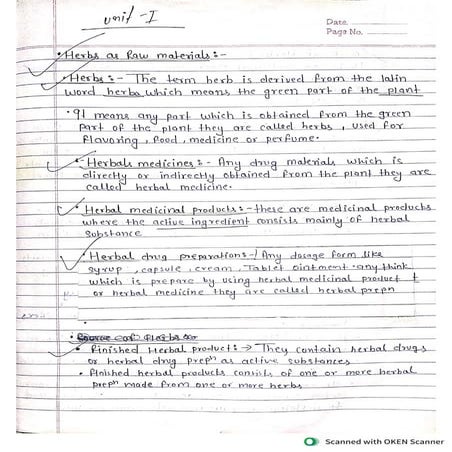 Unit - I
Date
Page No.
• Herbs as Raw materials :-
• Herbs :- The term herb is derived from the latin
word herba which means the green part of the plant
• It means any part which is obtained from the green
Part of the plant they are called herbs, used for
flavoring, food, medicine or perfume.
• Herbals medicines :- Any drug materials which is
directly or indirectly obtained from the plant they are
called herbal medicine.
• Herbal medicinal products :- these are medicinal products
where the active ingredient consists mainly of herbal
substance
• Herbal drug preparations - Any dosage form like
syrup, capsule, cream, Tablet ointment any think
which is prepare by using herbal medicinal product
or herbal medicine they are called herbal prepn
• Source of Herbs
• Finished Herbal product :→ They contain herbal drugs
or herbal drug prepn as active substances
• finished herbal products consists of one or more herbal
prepn made from one or more herbs
Scanned with OKEN Scanner